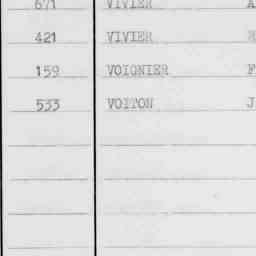 671 VIVIER A
421 VIVIER
159 VOIGNIER F
533 VOITON J